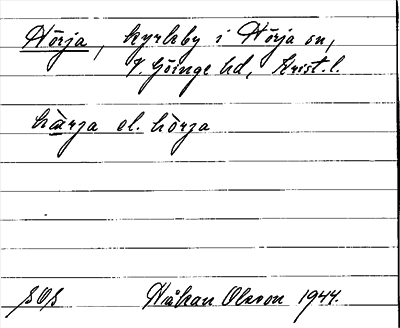 Hörja, kyrkby i Hörja sn,
V. Göinge hd, Krist. l.
hàrja el. hòrja
SOS Håkan Olsson 1944.